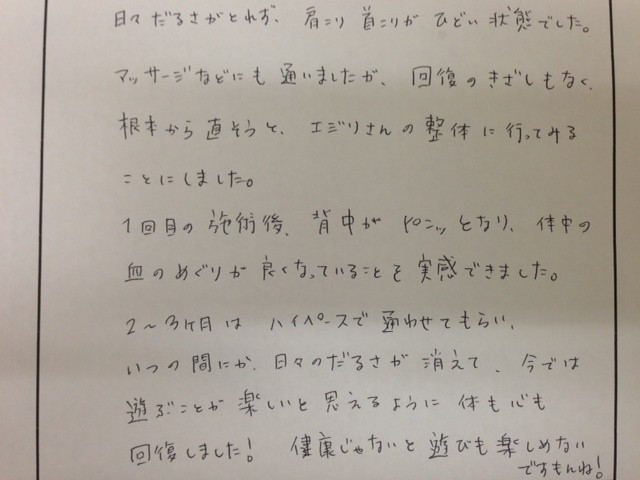 日々だるさがとれず、肩こり首こりがひどい状態でした。
マッサージなどにも通いましたが、回復のきざしもなく、
根本から直そうと、エジリさんの整体に行ってみる
ことにしました。
1回目の施術後、背中がピンッとなり、体中の
血のめぐりが良くなっていることを実感できました。
2〜3ヶ月はハイペースで通わせてもらい、
いつの間にか、日々のだるさが消えて、今では
遊ぶことが楽しいと思えるように体も心も
回復しました！健康じゃないと遊びも楽しめない
ですもんね！